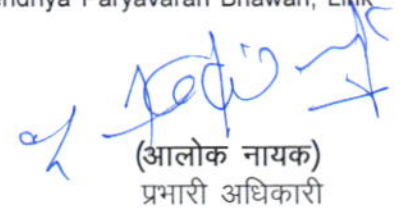 Paryavaran Bhawan, Link
(आलोक नायक)
प्रभारी अधिकारी